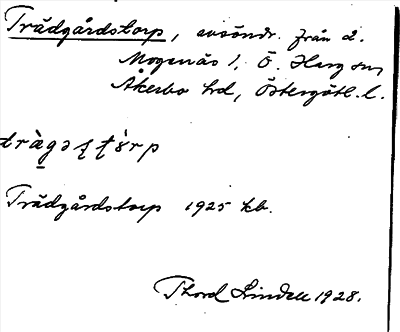 Trädgårdstorp, avsöndr. från d.
Mogenäs 1. Ö. Harg sn,
Åkerbo hd, Östergötl. l.
Trädgårdstorp 1925 kb.
Thord Lindell 1928.